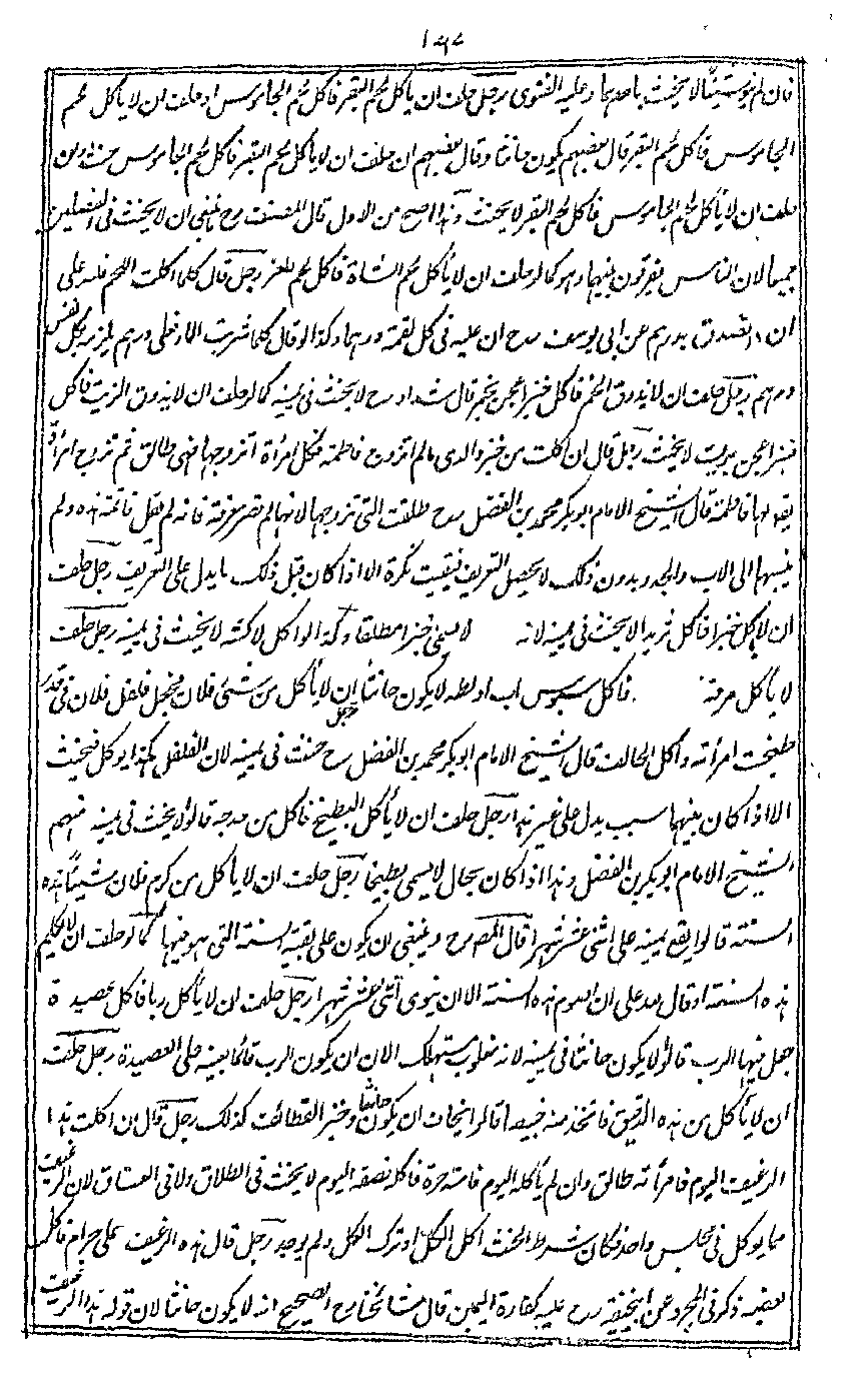 ۱۶۷
فان لم ينو شيئا لا يحنث باحدهما وعليه الفتوى رجل حلف ان لا يأكل لحم البقر فاكل لحم الجاموس او حلف ان لا يأكل لحم
الجاموس فاكل لحم البقر قال بعضهم يكون حانثا وقال بعضهم ان حلف ان لا يأكل لحم البقر فاكل لحم الجاموس حنث وان
حلف ان لا يأكل لحم الجاموس فاكل لحم البقر لا يحنث وهذا اصح من الاول قال المصنف رح ينبغي ان لا يحنث في الفصلين
جميعا لان الناس يفرقون بينهما وهو كما لو حلف ان لا يأكل لحم الشاة فاكل لحم المعز رجل قال كلما اكلت اللحم فلله علي
ان اتصدق بدرهم عن ابي يوسف رح ان عليه في كل لقمة درهما وكذا لو قال كلما شربت الماء فعلي درهم يلزمه بكل نفس
درهم رجل حلف ان لا يذوق الخمر فاكل خبزا عجن بخمر قال شداد رح لا يحنث في يمينه كما لو حلف ان لا يذوق الزيت فاكل
خبزا عجن بزيت لا يحنث رجل قال ان اكلت من خبز والدي مالم اتزوج فاطمة فكل امرأة اتزوجها فهي طالق ثم تزوج امرأة
يقولها فاطمة قال الشيخ الامام ابو بكر محمد بن الفضل رح طلقت التي تزوجها لانها لم تصر معرفة فانه لم يقل فاطمة هذه ولم
ينسبها الى الاب والجد وبدون ذلك لا يحصل التعريف فبقيت نكرة الا اذا كان قبل ذلك ما يدل على التعريف رجل حلف
ان لا يأكل خبزا فاكل ثريدا لا يحنث في يمينه لانه لا يسمى خبزا مطلقا وكذا لو اكل لاكشه لا يحنث في يمينه رجل حلف
لا يأكل مرقة فاكل سبوس اب او لطه لا يكون حانثا رجل حلف ان لا يأكل من شئ فلان فجعل فلفل فلان في قدر
طبخت امرأته واكل الحالف قال الشيخ الامام ابو بكر محمد بن الفضل رح حنث في يمينه لان الفلفل هكذا يوكل فيحنث
الا اذا كان بينهما سبب يدل على غير هذا رجل حلف ان لا يأكل البطيخ فاكل من حدجه قالوا لا يحنث في يمينه منهم
الشيخ الامام ابو بكر بن الفضل وهذا اذا كان بحال لا يسمى بطيخا رجل حلف ان لا يأكل من كرم فلان شيئا هذه
السنة قالوا يقع يمينه على اثنى عشر شهرا قال المصنف رح وينبغي ان يكون على بقية السنة التي هو فيها كما لو حلف ان لا يكلم
هذه السنة او قال لله علي ان اصوم هذه السنة الا ان ينوي اثنى عشر شهرا رجل حلف ان لا يأكل ربا فاكل عصيدة
جعل فيها الرب قالوا لا يكون حانثا في يمينه لانه مغلوب مستهلك الا ان يكون الرب قائما بعينه على العصيدة رجل حلف
ان لا يأكل من هذه الدقيق فاتخذ منه خبيصا قالوا يخاف ان يكون حانثا وخبز القطائف كذلك رجل قال ان اكلت هذا
الرغيف اليوم فامرأته طالق وان لم يأكله اليوم فامته حرة فاكل نصفه اليوم لا يحنث في الطلاق ولا في العتاق لان الرغيف
مما يوكل في مجلس واحد فكان شرط الحنث اكل الكل او ترك الكل ولم يوجد رجل قال هذه الرغيف علي حرام فاكل
بعضه ذكر في المجرد عن ابي حنيفة رح عليه كفارة اليمين قال مشائخنا رح الصحيح انه لا يكون حانثا لان قوله هذا الرغيف